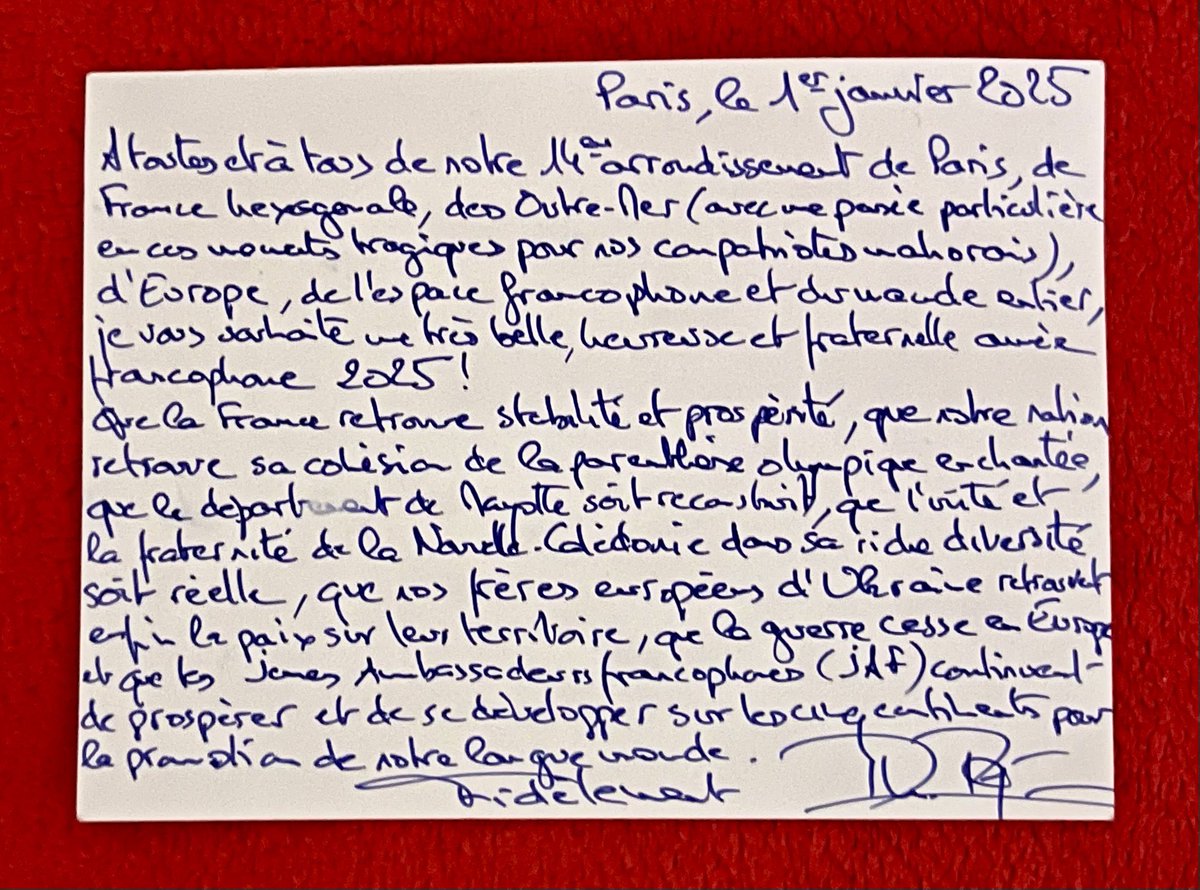 Paris, le 1er janvier 2025
A toutes et à tous de notre 14ème arrondissement de Paris, de
France hexagonale, des Outre-Mer (avec une pensée particulière
en ces moments tragiques pour nos compatriotes mahorais),
d'Europe, de l'espace francophone et du monde entier,
je vous souhaite une très belle, heureuse et fraternelle année
francophone 2025 !
Que la France retrouve stabilité et prospérité, que notre nation
retrouve sa cohésion de la parenthèse olympique enchantée,
que le département de Mayotte soit reconstruit, que l'unité et
la fraternité de la Nouvelle-Calédonie dans sa riche diversité
soit réelle, que nos frères européens d'Ukraine retrouvent
enfin la paix sur leur territoire, que la guerre cesse en Europe
et que les jeunes Ambassadeurs francophones (JAF) continuent
de prospérer et de se développer sur les cinq continents pour
la promotion de notre langue monde.
Fidèlement